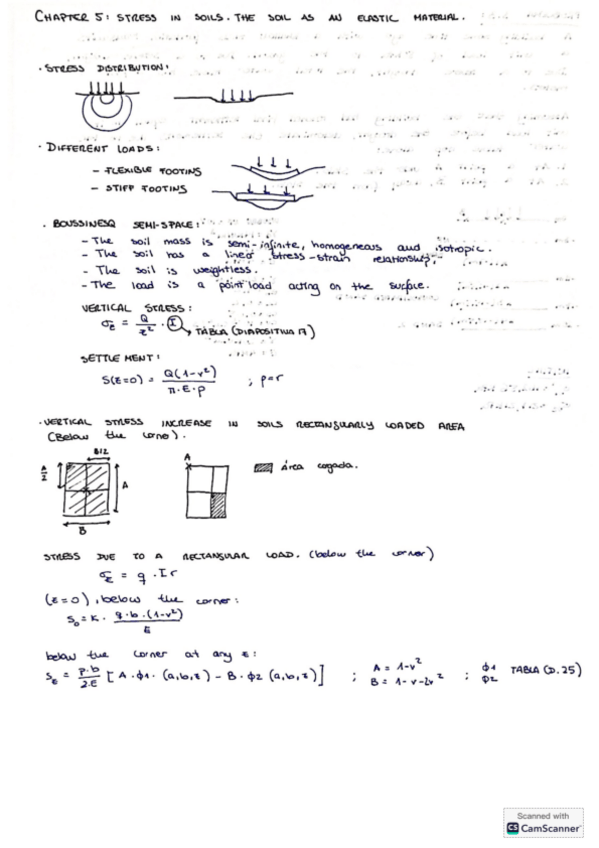 CHAPTER 5: STRESS IN SOILS. THE SOIL AS AN ELASTIC MATERIAL.
· STRESS DISTRIBUTION:
· DIFFERENT LOADS:
- FLEXIBLE FOOTING
- STIFF FOOTING
· BOUSSINESQ SEMI-SPACE:
- The soil mass is semi-infinite, homogeneous and isotropic.
- The soil has a linear stress-strain relationship.
- The soil is weightless.
- The load is a point load acting on the surface.
VERTICAL STRESS:
σz = Q/z² · I → TABLA (DIAPOSITIVA 17)
SETTLEMENT:
S(z=0) = Q(1-ν²)/π·E·ρ ; ρ=r
· VERTICAL STRESS INCREASE IN SOILS RECTANGULARLY LOADED AREA
(Below the corner).
B/2
A/2
A
B
A
área cargada.
STRESS DUE TO A RECTANGULAR LOAD. (below the corner)
σz = q · Ir
(z=0), below the corner:
S₀ = K · q·b·(1-ν²)/E
below the corner at any z:
Sz = p·b/2·E [A·ϕ1·(a,b,z) - B·ϕ2(a,b,z)] ; A = 1-ν² ; ϕ1 TABLA (D.25)
B = 1-ν-2ν² ϕ2
Scanned with
CS CamScanner